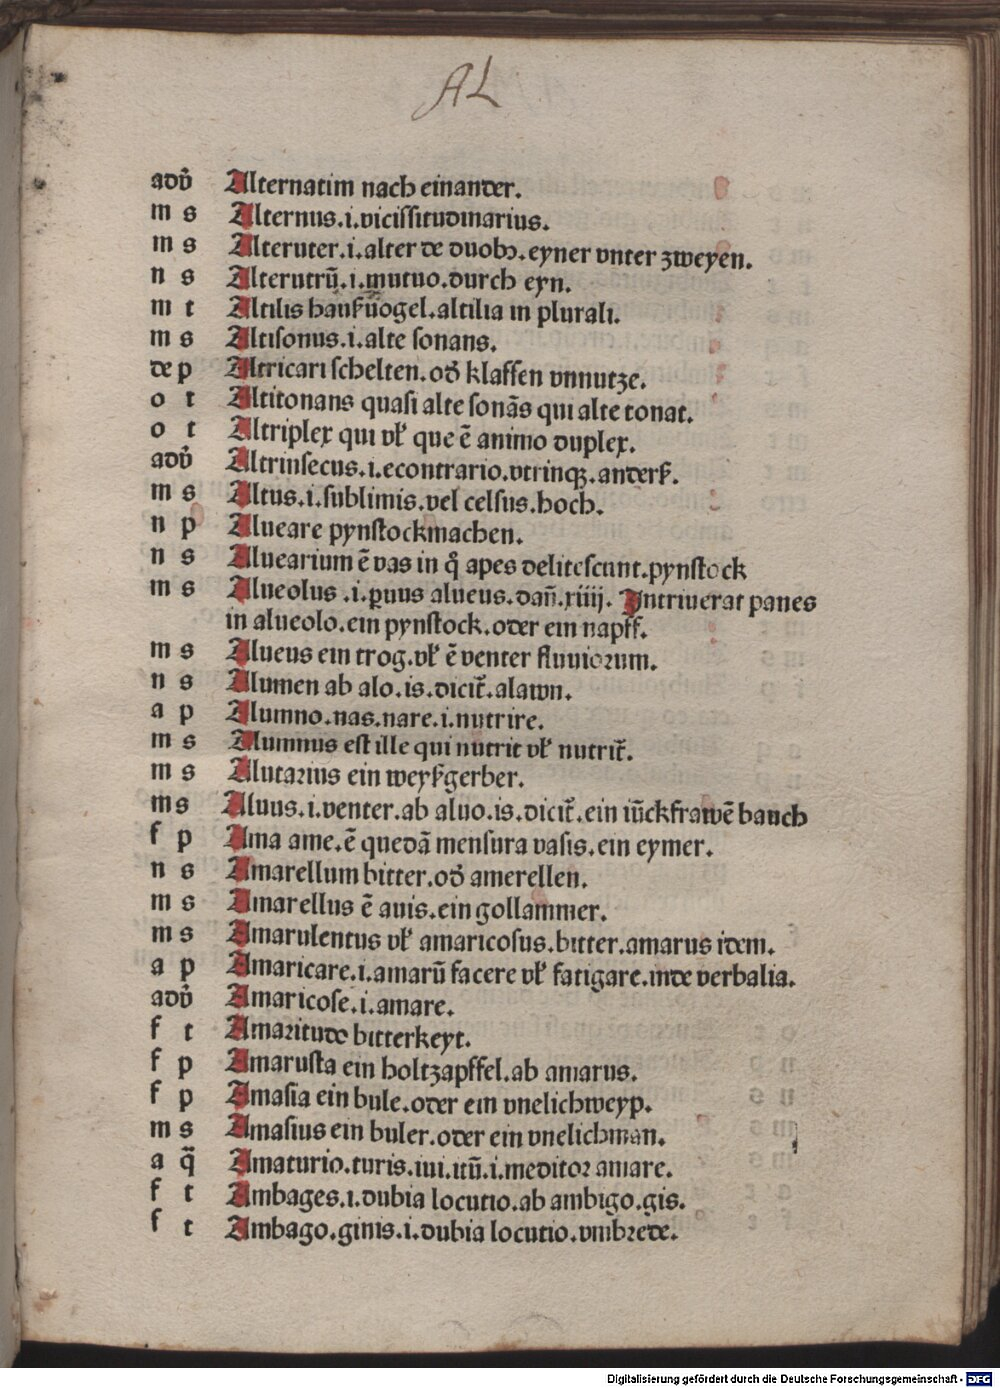 AL
adv̄ Alternatim nach einander.
m s Alternus.i.vicissitudinarius.
m s Alteruter.i.alter de duobꝫ.eyner vnter zweyen.
n s Alterutrū.i.mutuo.durch eyn.
m t Altilis haußuogel.altilia in plurali.
m s Altisonus.i.alte sonans.
de p Altricari schelten.od̄ klaffen vnnutze.
o t Altitonans quasi alte sonās qui alte tonat.
o t Altriplex qui vl̄ que ē animo duplex.
adv̄ Altrinsecus.i.econtrario.vtrinqꝫ.anderß.
m s Altus.i.sublimis.vel celsus.hoch.
n p Alueare pynstockmachen.
n s Aluearium ē vas in q̊ apes delitescunt.pynstock
m s Alueolus .i.ꝑuus alueus.dañ.xiiij. Intriuerat panes
in alueolo.ein pynstock.oder ein napff.
m s Alueus ein trog.vl̄ ē venter fluuiorum.
n s Alumen ab alo.is.dicit̄.alawn.
a p Alumno.nas.nare.i.nutrire.
m s Alumnus est ille qui nutrit vl̄ nutrit̄.
m s Alutarius ein weyßgerber.
m s Aluus.i.venter.ab aluo.is.dicit̄.ein iūckfrawē bauch
f p Ama ame.ē quedā mensura vasis.ein eymer.
n s Amarellum bitter.od̄ amerellen.
m s Amarellus ē auis.ein gollammer.
m s Amarulentus vl̄ amaricosus.bitter.amarus idem.
a p Amaricare.i.amarū facere vl̄ fatigare.inde verbalia.
adv̄ Amaricose.i.amare.
f t Amaritudo bitterkeyt.
f p Amarusta ein holtzapffel.ab amarus.
f p Amasia ein bule.oder ein vnelichweyp.
m s Amasius ein buler.oder ein vnelichman.
a q̄ Amaturio.turis.iui.itū.i.meditor amare.
f t Ambages.i.dubia locutio.ab ambigo.gis.
f t Ambago.ginis.i.dubia locutio.vmbrede.
Digitalisierung gefördert durch die Deutsche Forschungsgemeinschaft - DFG